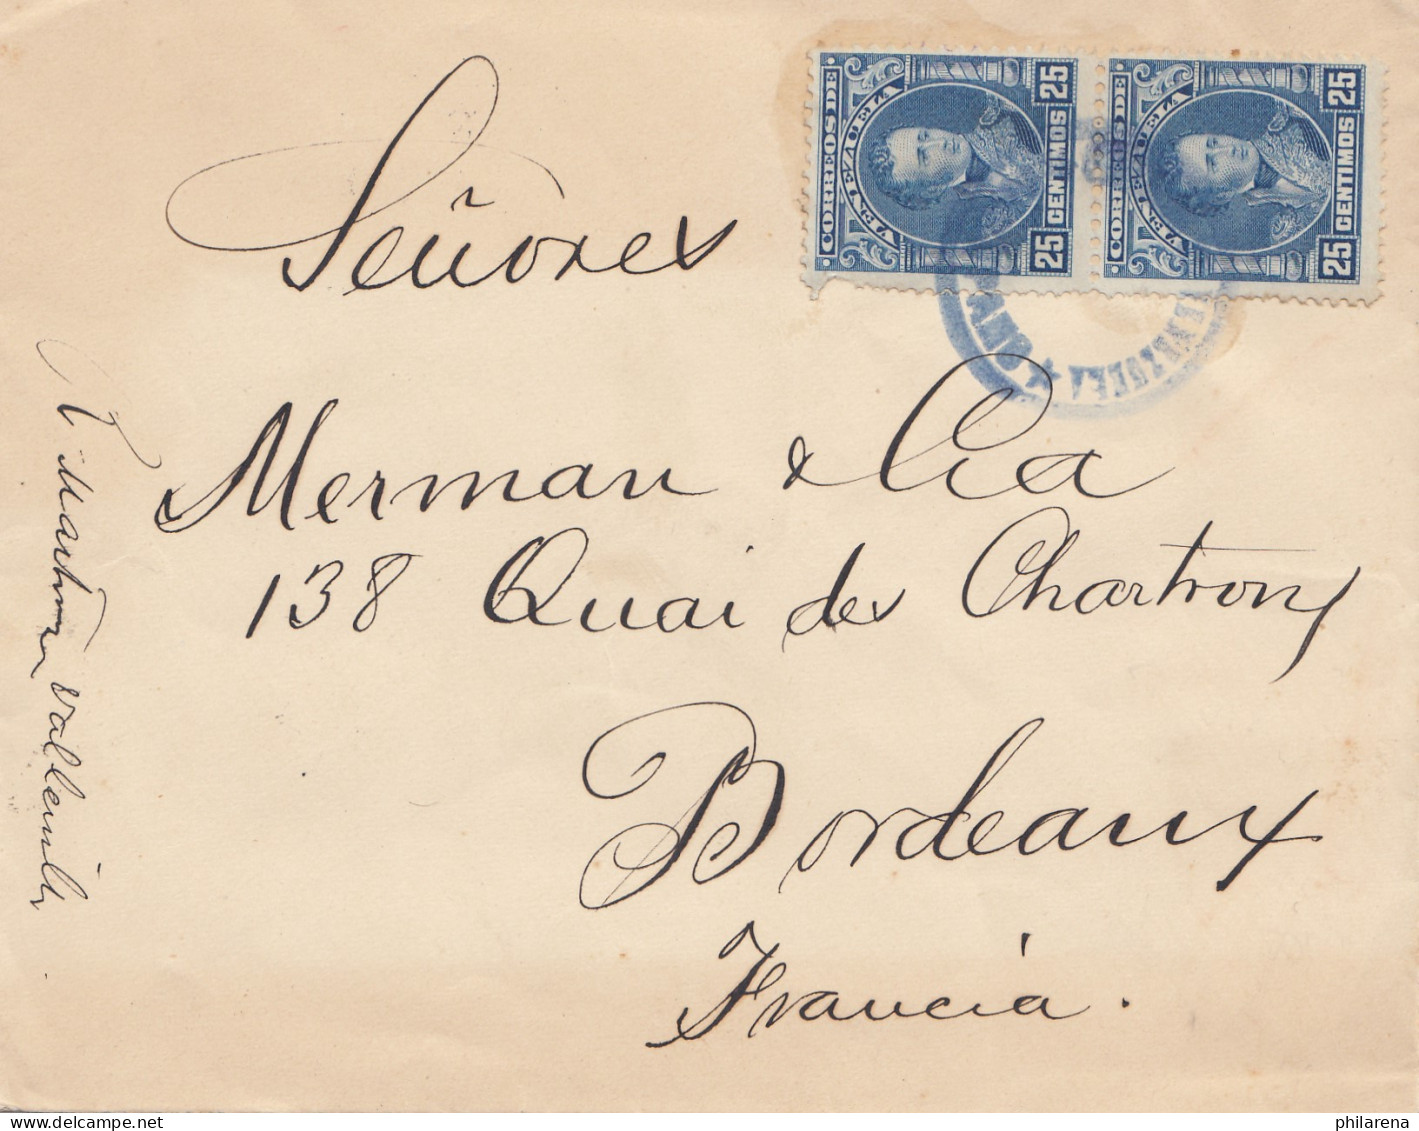 CORREOS DE
VENEZUELA
25 CENTIMOS 25
CORREOS DE
VENEZUELA
25 CENTIMOS 25
VENEZUELA
Señores
Merman & Cia
138 Quai des Chartrons
Bordeaux
Francia.
philarena